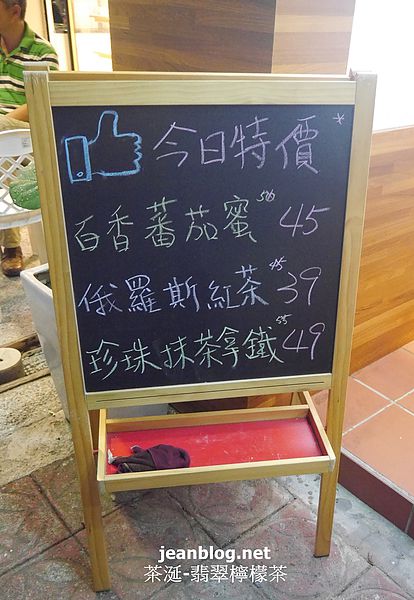 今日特價*
百香蕃茄蜜 50 45
俄羅斯紅茶 45 39
珍珠抹茶拿鐵 55 49
jeanblog.net
茶涎-翡翠檸檬茶